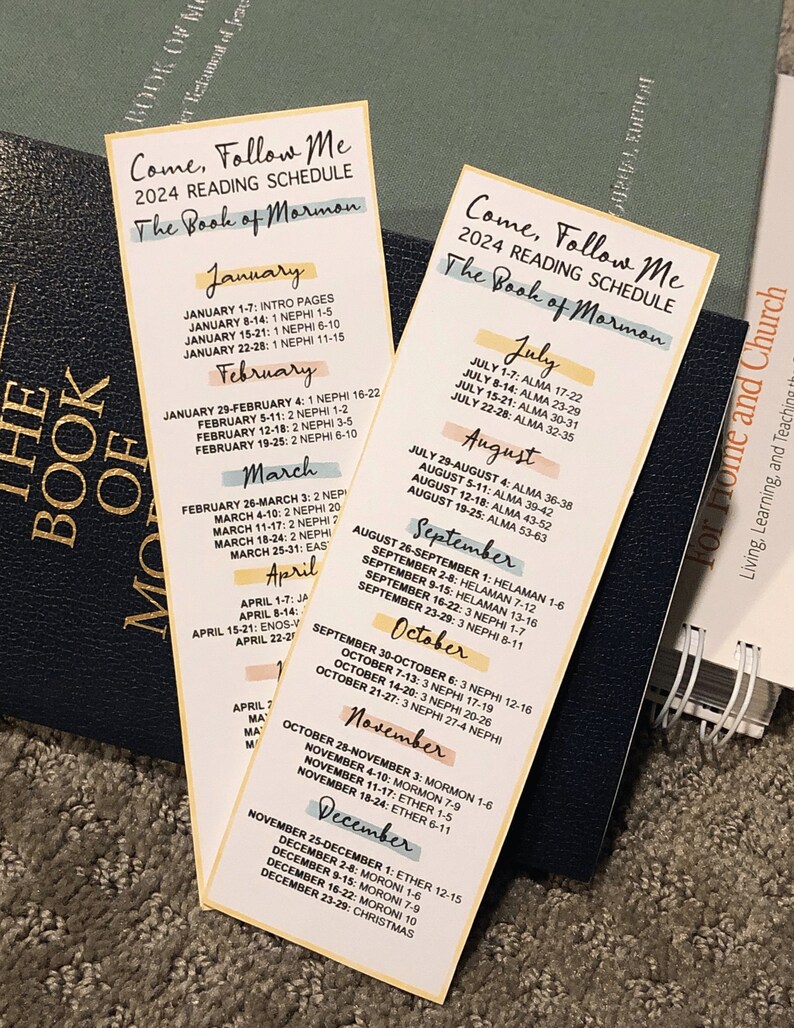 BOOK OF MO
Testament of Jesus
JOURNAL EDITION
THE
BOOK
OF
MO
For Home and Church
Living, Learning, and Teaching the
Come, Follow Me
2024 READING SCHEDULE
The Book of Mormon
January
JANUARY 1-7: INTRO PAGES
JANUARY 8-14: 1 NEPHI 1-5
JANUARY 15-21: 1 NEPHI 6-10
JANUARY 22-28: 1 NEPHI 11-15
February
JANUARY 29-FEBRUARY 4: 1 NEPHI 16-22
FEBRUARY 5-11: 2 NEPHI 1-2
FEBRUARY 12-18: 2 NEPHI 3-5
FEBRUARY 19-25: 2 NEPHI 6-10
March
FEBRUARY 26-MARCH 3: 2 NEPHI
MARCH 4-10: 2 NEPHI 20
MARCH 11-17: 2 NEPHI
MARCH 18-24: 2 NEPHI
MARCH 25-31: EAS
April
APRIL 1-7: JA
APRIL 8-14:
APRIL 15-21: ENOS-W
APRIL 22-28
APRIL 2
MA
MA
MA
Come, Follow Me
2024 READING SCHEDULE
The Book of Mormon
July
JULY 1-7: ALMA 17-22
JULY 8-14: ALMA 23-29
JULY 15-21: ALMA 30-31
JULY 22-28: ALMA 32-35
August
JULY 29-AUGUST 4: ALMA 36-38
AUGUST 5-11: ALMA 39-42
AUGUST 12-18: ALMA 43-52
AUGUST 19-25: ALMA 53-63
September
AUGUST 26-SEPTEMBER 1: HELAMAN 1-6
SEPTEMBER 2-8: HELAMAN 7-12
SEPTEMBER 9-15: HELAMAN 13-16
SEPTEMBER 16-22: 3 NEPHI 1-7
SEPTEMBER 23-29: 3 NEPHI 8-11
October
SEPTEMBER 30-OCTOBER 6: 3 NEPHI 12-16
OCTOBER 7-13: 3 NEPHI 17-19
OCTOBER 14-20: 3 NEPHI 20-26
OCTOBER 21-27: 3 NEPHI 27-4 NEPHI
November
OCTOBER 28-NOVEMBER 3: MORMON 1-6
NOVEMBER 4-10: MORMON 7-9
NOVEMBER 11-17: ETHER 1-5
NOVEMBER 18-24: ETHER 6-11
December
NOVEMBER 25-DECEMBER 1: ETHER 12-15
DECEMBER 2-8: MORONI 1-6
DECEMBER 9-15: MORONI 7-9
DECEMBER 16-22: MORONI 10
DECEMBER 23-29: CHRISTMAS